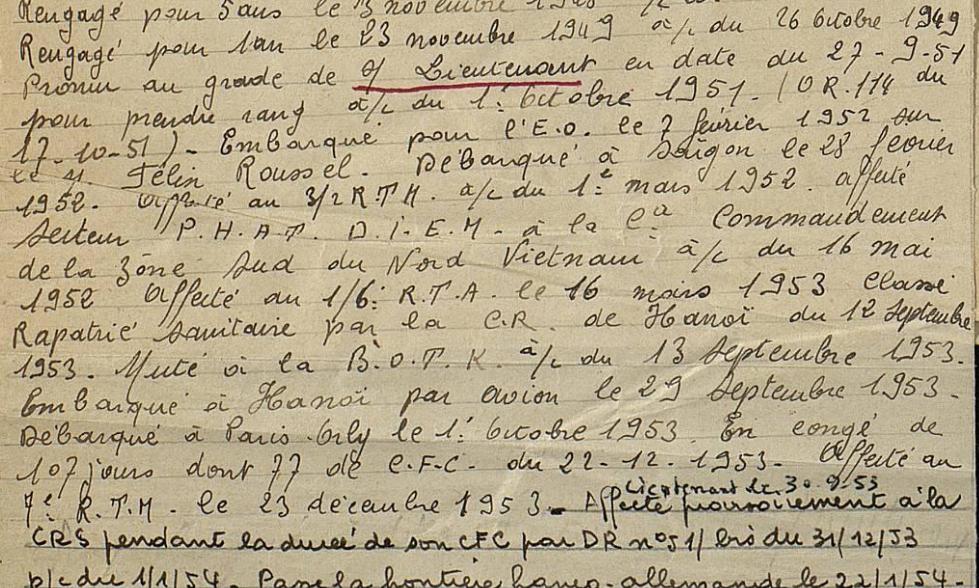 Rengagé pour 5 ans le 3 novembre
Rengagé pour 1 an le 23 novembre 1949 à/c du 26 Octobre 1949
Promu au grade de S/ Lieutenant en date du 27-9-51
pour prendre rang à/c du 1: Octobre 1951. (OR.114 du
17-10-51) - Embarqué pour l'E.O. le 7 février 1952 sur
le Félix Roussel. Débarqué à Saïgon le 28 février
1952. Affecté au 3/2 R.T.M. à/c du 1: mars 1952. affecté
Secteur P.H.A.T. D.I.E.M - à la Cie Commandement
de la Zône Sud du Nord Vietnam à/c du 16 mai
1952 Affecté au 1/6: R.T.A. le 16 mars 1953 Classé
Rapatrié Sanitaire par la C.R. de Hanoï du 12 Septembre
1953. Muté à la B.O.T.K à/c du 13 Septembre 1953.
Embarqué à Hanoï par avion le 29 Septembre 1953.
Débarqué à Paris-Orly le 1: Octobre 1953. En congé de
107 jours dont 77 de C.F.C. du 22-12-1953. Affecté au
Lieutenant le 30-9-53
7e R.T.M. le 23 décembre 1953. Affecté provisoirement à la
CRS pendant la durée de son CFC par DR n°51/ bis du 31/12/53
p/c du 1/1/54. Passe la frontière franco-allemande le 22/1/54.